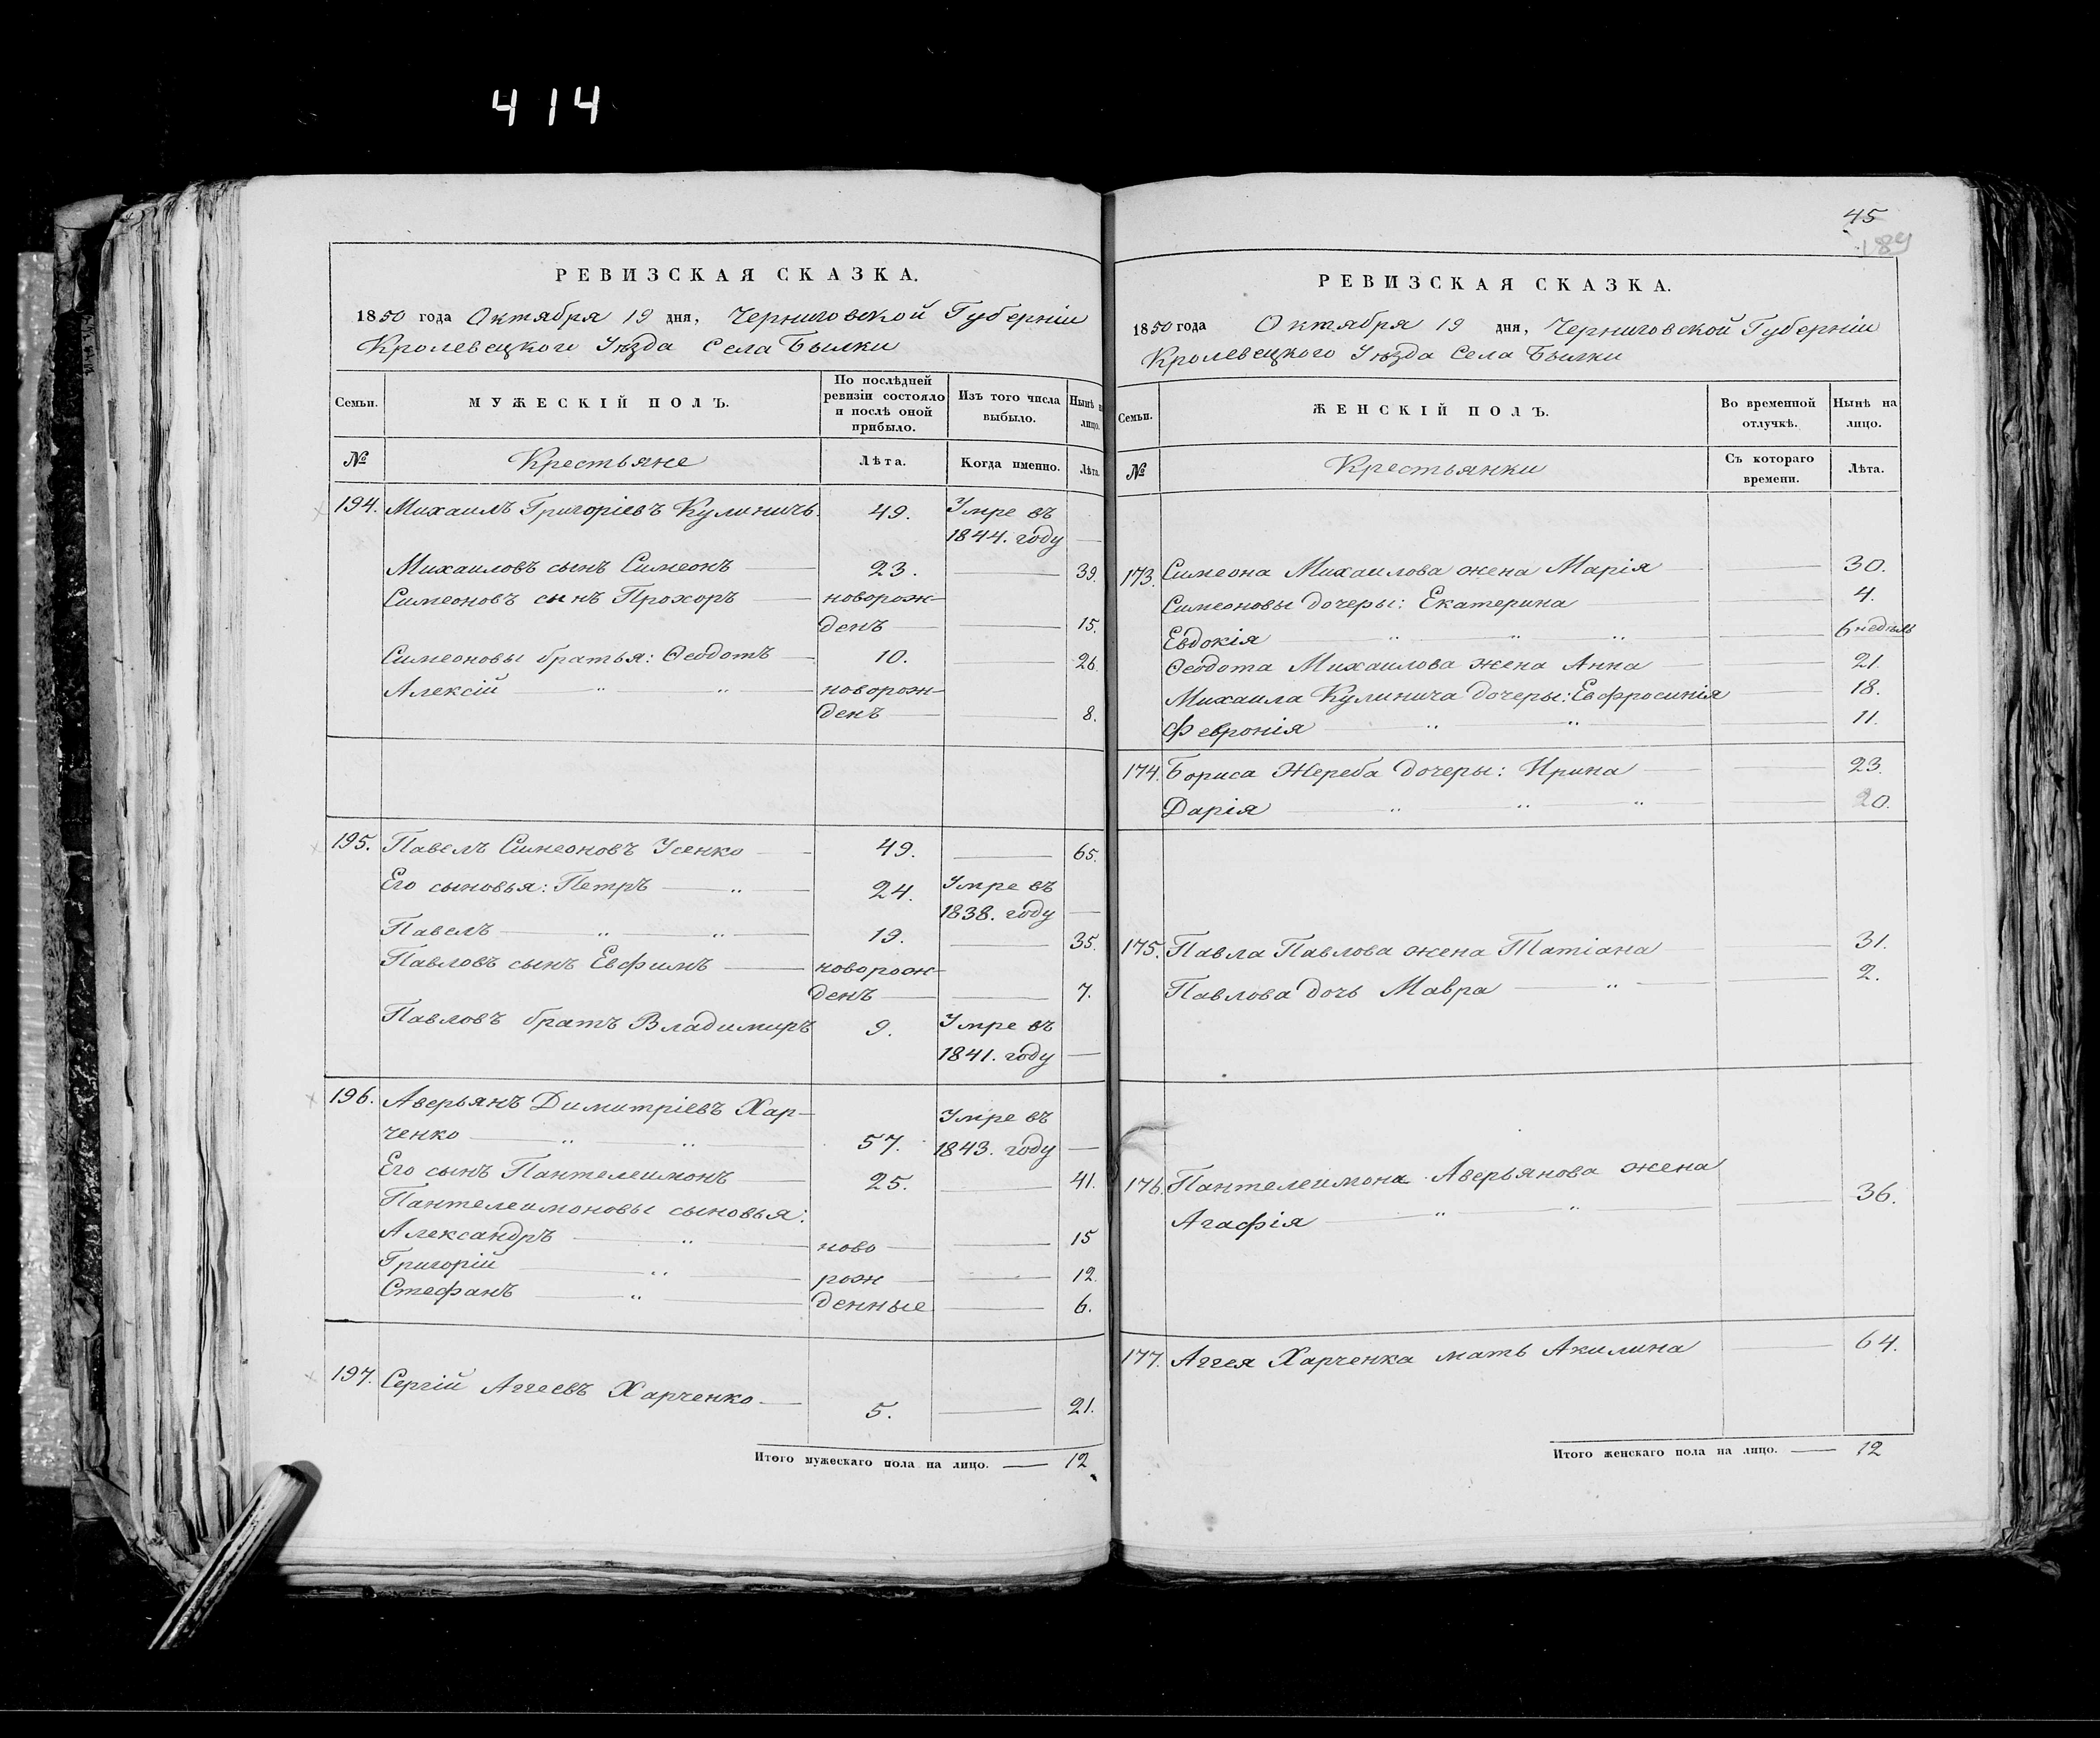 414
РЕВИЗСКАЯ СКАЗКА.
1850 года Октября 19 дня, Черниговской Губерніи
Кролевецкого Уѣзда Села Былки
Семьи.
МУЖЕСКІЙ ПОЛЪ.
По послѣдней ревизіи состояло и послѣ оной прибыло.
Изъ того числа выбыло.
Нынѣ н лицо.
№
Крестьяне
Лѣта.
Когда именно.
Лѣта.
194. Михаилъ Григоріевъ Кулиничъ. 49. Умре въ
1844. году
Михаиловъ сынъ Симеонъ 23. 39.
Симеоновъ сынъ Прохоръ новорож-
денъ 15.
Симеоновы братья: Ѳеодотъ 10. 26.
Алексій " " новорож-
денъ 8.
195. Павелъ Симеоновъ Усенко 49. 65.
Его сыновья: Петръ " 24. Умре въ
1838. году
Павелъ " " 19. 35.
Павловъ сынъ Евфимъ новорож-
денъ 7.
Павловъ братъ Владимиръ 9. Умре въ
1841. году
196. Аверьянъ Димитріевъ Хар- Умре въ
ченко " " 57. 1843. году
Его сынъ Пантелеимонъ 25. 41.
Пантелеимоновы сыновья:
Александръ " ново 15
Григорій " рож 12.
Стефанъ " денные 6.
197. Сергій Аггеевъ Харченко 5. 21.
Итого мужескаго пола на лицо. 12
45
189
РЕВИЗСКАЯ СКАЗКА.
1850 года Октября 19 дня, Черниговской Губерніи
Кролевецкого Уѣзда Села Былки
Семьи.
ЖЕНСКІЙ ПОЛЪ.
Во временной отлучкѣ.
Нынѣ на лицо.
№
Крестьянки
Съ котораго времени.
Лѣта.
173. Симеона Михаилова жена Марія 30.
Симеоновы дочеры: Екатерина 4.
Евдокія " " " 6 недѣль
Ѳеодота Михаилова жена Анна 21.
Михаила Кулинича дочеры: Евфросинія 18.
Февронія " " 11.
174. Бориса Жереба дочеры: Ирина 23.
Дарія " " " 20.
175. Павла Павлова жена Татіана 31.
Павлова дочь Мавра " 2.
176. Пантелеимона Аверьянова жена
Агафія " " 36.
177. Аггея Харченка мать Акилина 64.
Итого женскаго пола на лицо. 12